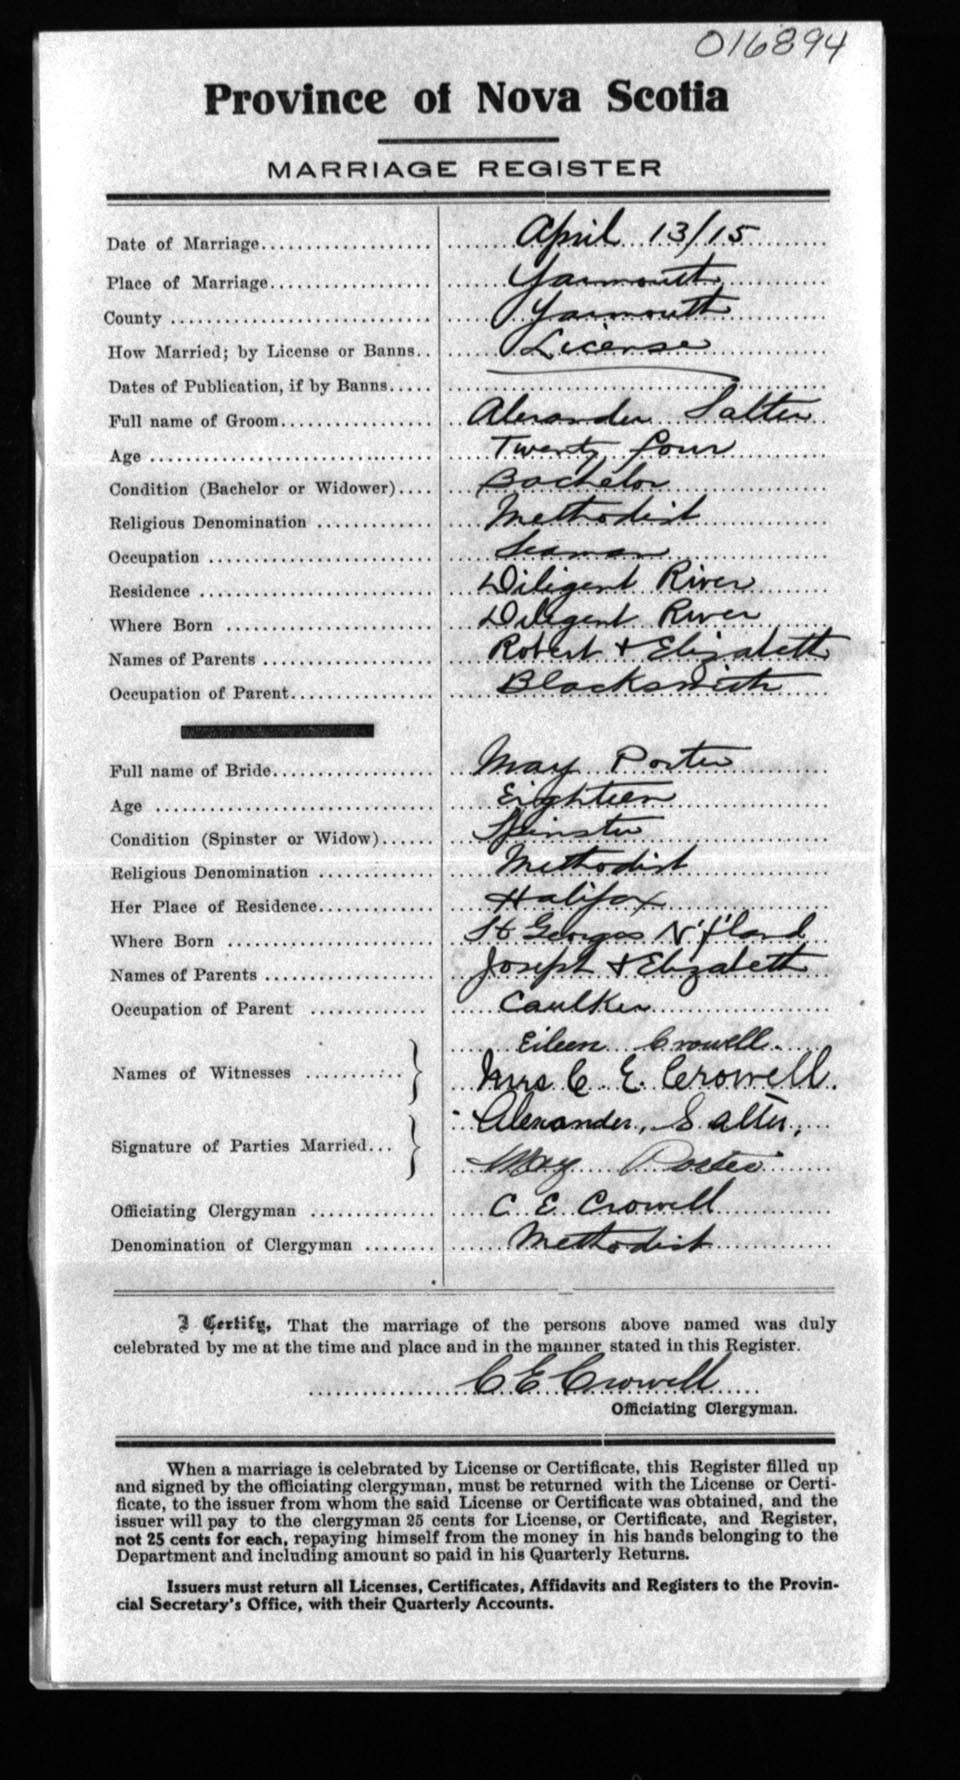 016894
Province of Nova Scotia
MARRIAGE REGISTER
Date of Marriage.................... April 13/15
Place of Marriage.................. Yarmouth
County ............................ Yarmouth
How Married; by License or Banns.. License
Dates of Publication, if by Banns.....
Full name of Groom................. Alexander Salter
Age ............................... Twenty four
Condition (Bachelor or Widower).... Bachelor
Religious Denomination ............ Methodist
Occupation ........................ Seaman
Residence ......................... Diligent River
Where Born ........................ Diligent River
Names of Parents .................. Robert + Elizabeth
Occupation of Parent............... Blacksmith
Full name of Bride................. May Porter
Age ............................... Eighteen
Condition (Spinster or Widow)...... Spinster
Religious Denomination ............ Methodist
Her Place of Residence............. Halifax
Where Born ........................ St Georges N'f'land
Names of Parents .................. Joseph + Elizabeth
Occupation of Parent ............. Caulker
Eileen Crowell.
Names of Witnesses ........... } Mrs C. E. Crowell.
Alexander, Salter,
Signature of Parties Married... }
May Porter
Officiating Clergyman ............. C E Crowell
Denomination of Clergyman ........ Methodist
I Certify, That the marriage of the persons above named was duly
celebrated by me at the time and place and in the manner stated in this Register.
C E Crowell
Officiating Clergyman.
When a marriage is celebrated by License or Certificate, this Register filled up
and signed by the officiating clergyman, must be returned with the License or Certi-
ficate, to the issuer from whom the said License or Certificate was obtained, and the
issuer will pay to the clergyman 25 cents for License, or Certificate, and Register,
not 25 cents for each, repaying himself from the money in his hands belonging to the
Department and including amount so paid in his Quarterly Returns.
Issuers must return all Licenses, Certificates, Affidavits and Registers to the Provin-
cial Secretary's Office, with their Quarterly Accounts.